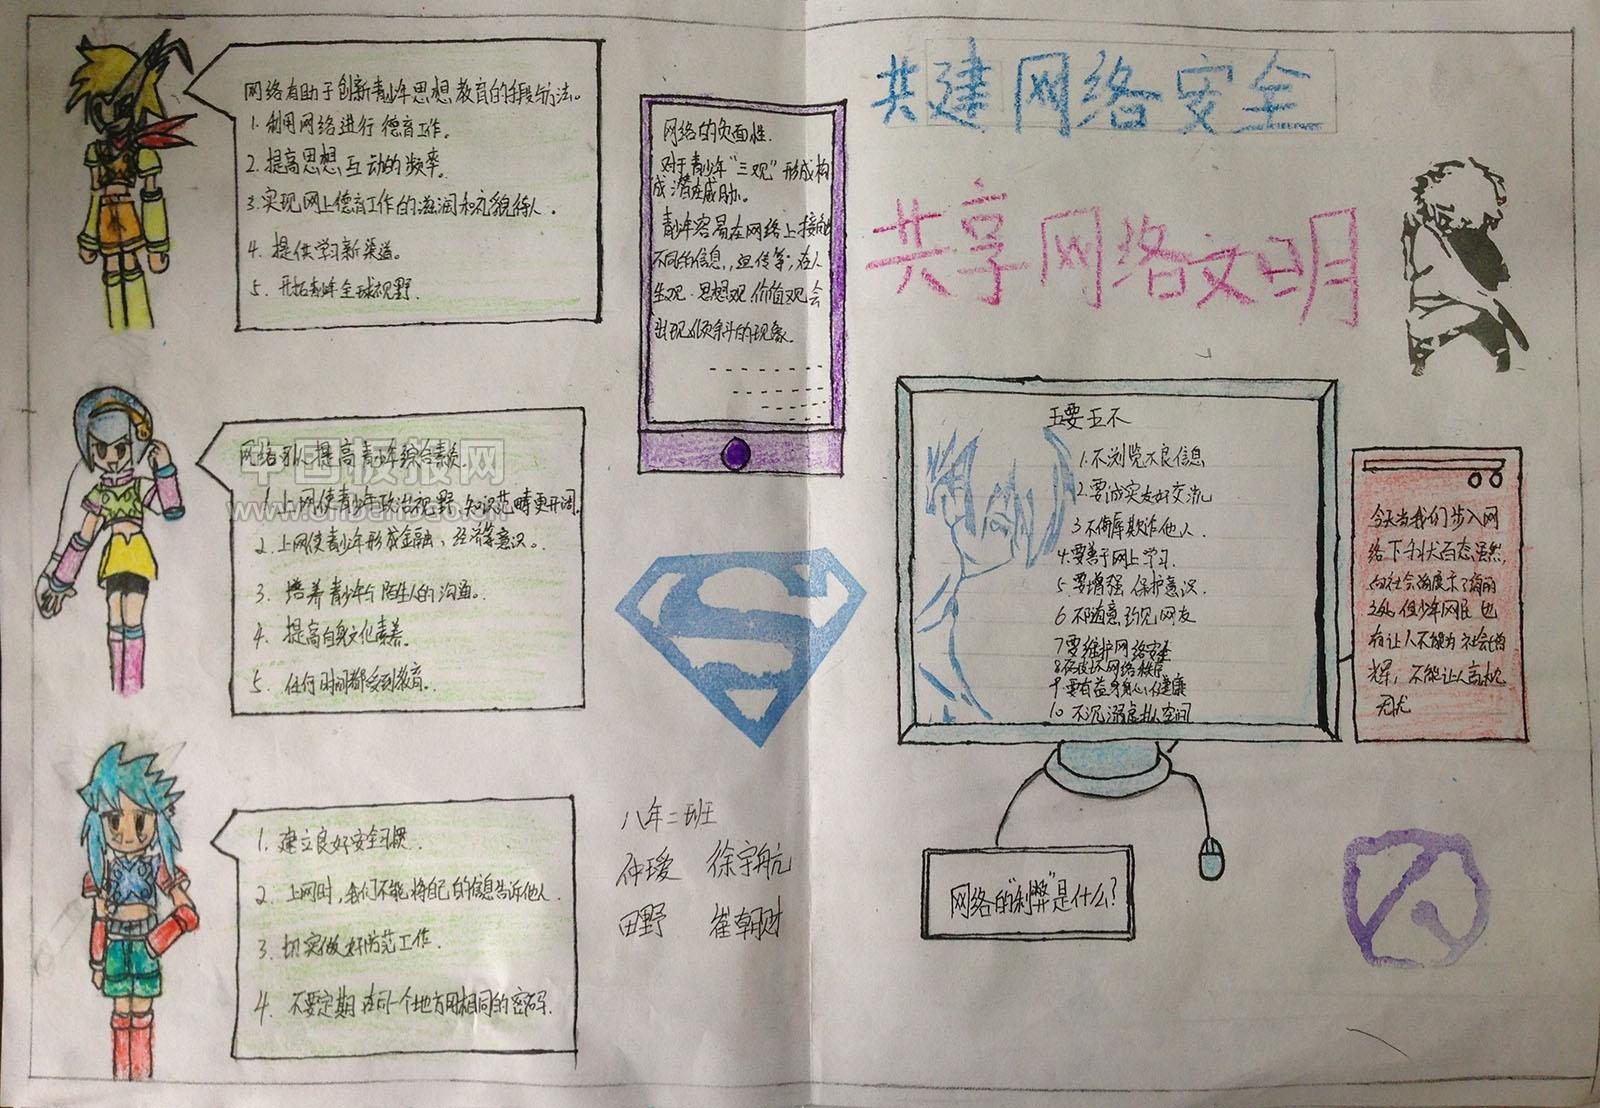 共建网络安全
共享网络文明
网络有助于创新青少年思想教育的手段与方法。
1. 利用网络进行德育工作。
2. 提高思想互动的频率。
3. 实现网上德育工作的滋润和礼貌待人。
4. 提供学习新渠道。
5. 开拓青少年全球视野.
网络引人提高青少年综合素质.
1. 上网使青少年政治视野、知识范畴更开阔.
2. 上网使青少年形成金融、经济等意识。
3. 培养青少年与陌生人的沟通。
4. 提高自身文化素养.
5. 任何时间都受到教育.
中国板报网
1. 建立良好安全习惯.
2. 上网时,我们不能将自己的信息告诉他人.
3. 切实做好防范工作.
4. 不要定期在同一个地方用相同的密码.
网络的负面性.
对于青少年"三观"形成构
成潜在威胁。
青少年容易在网络上接触
不同的信息,宣传等,在人
生观.思想观.价值观会
出现倾斜的现象.
八年二班
仲瑷 徐宇航
田野 崔朝财
五要五不
1.不浏览不良信息
2.要诚实友好交流
3 不侮辱欺诈他人.
4.要善于网上学习.
5 要增强保护意识.
6 不随意约见网友
7要维护网络安全
8不破坏网络秩序
9.要有益身心健康
10 不沉溺虚拟空间
今天当我们步入网
络下千状百态虽然,
向社会面展示了绚丽
之处,但少年网民也
有让人不能为社会增
辉,不能让人高枕
无忧
网络的"利弊"是什么?